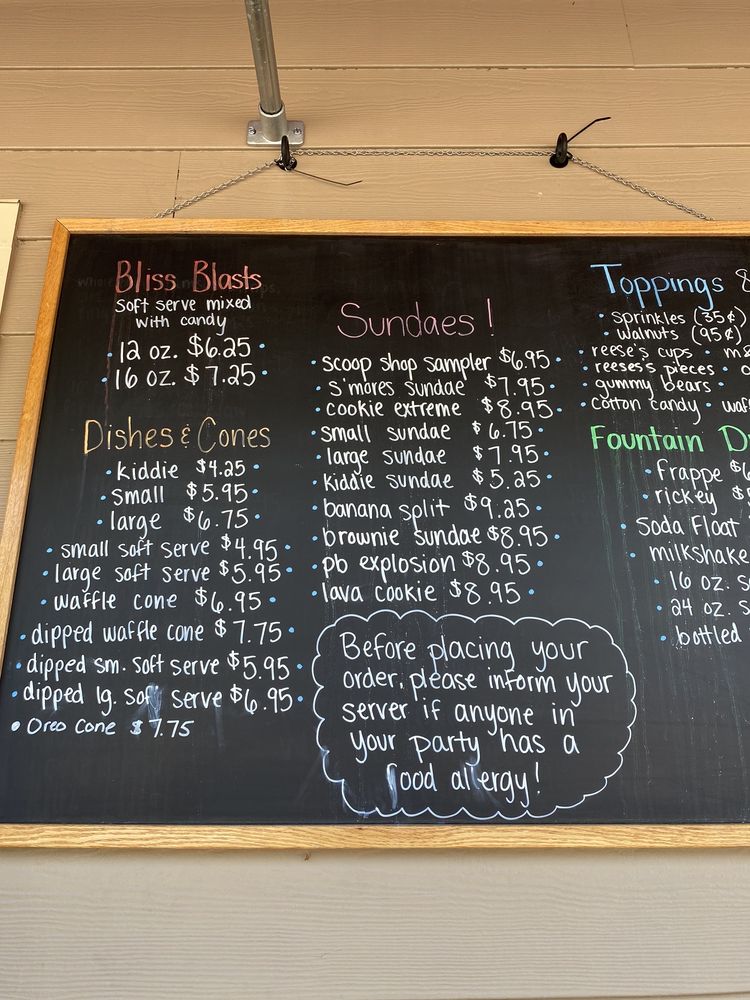 Bliss Blasts
soft serve mixed
with candy
• 12 oz. $6.25 •
• 16 oz. $7.25 •
Dishes & Cones
• kiddie $4.25 •
• small $5.95 •
• large $6.75 •
• small soft serve $4.95 •
• large soft serve $5.95 •
• waffle cone $6.95 •
• dipped waffle cone $7.75 •
• dipped sm. soft serve $5.95 •
• dipped lg. soft serve $6.95 •
• Oreo Cone $7.75
Sundaes!
• scoop shop sampler $6.95 •
• s'mores sundae $7.95 •
• cookie extreme $8.95 •
• small sundae $6.75 •
• large sundae $7.95 •
• kiddie sundae $5.25 •
• banana split $9.25 •
• brownie sundae $8.95 •
• pb explosion $8.95 •
• lava cookie $8.95 •
Before placing your
order, please inform your
server if anyone in
your party has a
food allergy!
Toppings &
• sprinkles (35¢)
• walnuts (95¢)
• reese's cups •
• reeses's pieces •
• gummy bears •
cotton candy •
Fountain
• frappe
• rickey
• soda float
• milkshake
• 16 oz.
• 24 oz.
• bottled